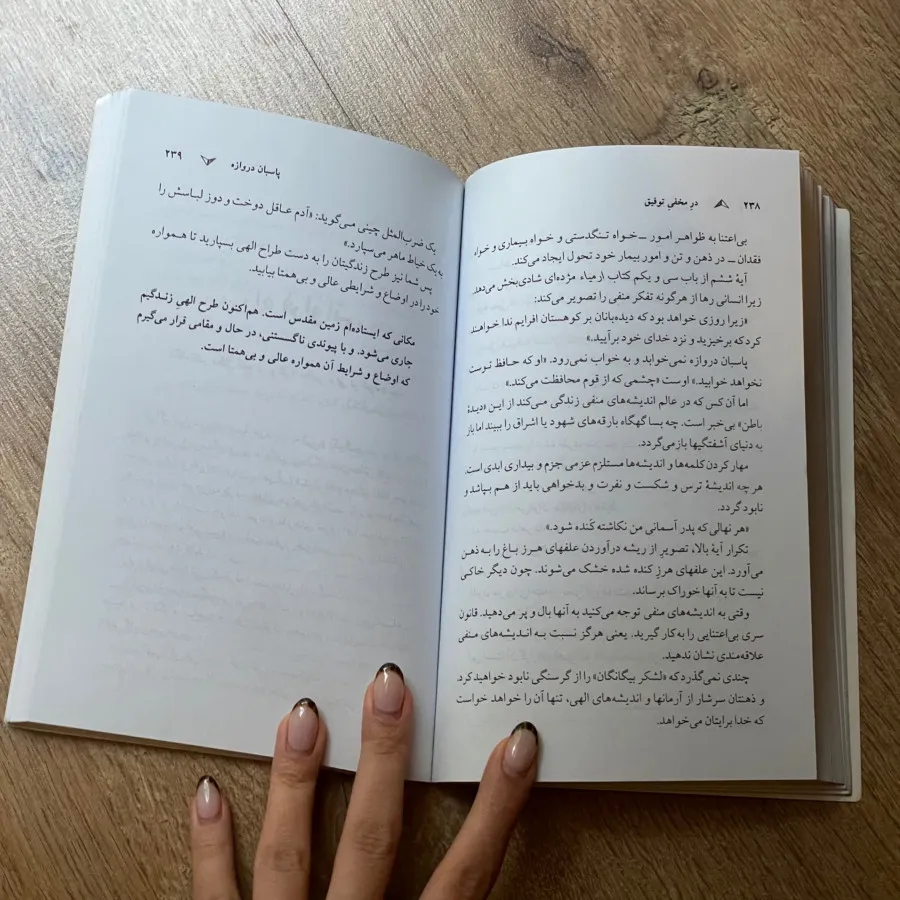 ۲۳۸ درِ مخفیِ توفیق
بی‌اعتنا به ظواهر امور ــ خواه تنگدستی و خواه بیماری و خواه
فقدان ــ در ذهن و تن و امور بیمار خود تحول ایجاد می‌کند.
آیهٔ ششم از باب سی و یکم کتاب ارمیاء مژده‌ای شادی‌بخش می‌دهد.
زیرا انسانی رها از هرگونه تفکر منفی را تصویر می‌کند:
«زیرا روزی خواهد بود که دیده‌بانان بر کوهستان افرایم ندا خواهند
کرد که برخیزید و نزد خدای خود برآیید.»
پاسبان دروازه نمی‌خوابد و به خواب نمی‌رود. «او که حافظ توست
نخواهد خوابید.» اوست «چشمی که از قوم محافظت می‌کند.»
اما آن کس که در عالم اندیشه‌های منفی زندگی می‌کند از این «دیدهٔ
باطن» بی‌خبر است. چه بسا گهگاه بارقه‌های شهود یا اشراق را ببیند اما باز
به دنیای آشفتگیها بازمی‌گردد.
مهار کردن کلمه‌ها و اندیشه‌ها مستلزم عزمی جزم و بیداری ابدی است.
هر چه اندیشهٔ ترس و شکست و نفرت و بدخواهی باید از هم بپاشد و
نابود گردد.
«هر نهالی که پدر آسمانی من نکاشته کَنده شود.»
تکرار آیهٔ بالا، تصویرِ از ریشه درآوردن علفهای هرز باغ را به ذهن
می‌آورد. این علفهای هرزِ کنده شده خشک می‌شوند. چون دیگر خاکی
نیست تا به آنها خوراک برساند.
وقتی به اندیشه‌های منفی توجه می‌کنید به آنها بال و پر می‌دهید. قانون
سری بی‌اعتنایی را به‌کار گیرید. یعنی هرگز نسبت به اندیشه‌های منفی
علاقه‌مندی نشان ندهید.
چندی نمی‌گذرد که «لشکر بیگانگان» را از گرسنگی نابود خواهید کرد.
و ذهنتان سرشار از آرمانها و اندیشه‌های الهی، تنها آن را خواهد خواست
که خدا برایتان می‌خواهد.
پاسبان دروازه ۲۳۹
یک ضرب‌المثل چینی می‌گوید: «آدم عاقل دوخت و دوز لباسش را
به یک خیاط ماهر می‌سپارد.»
پس شما نیز طرح زندگیتان را به دست طراح الهی بسپارید تا همواره
خود را در اوضاع و شرایطی عالی و بی‌همتا بیابید.
مکانی که ایستاده‌ام زمین مقدس است. هم‌اکنون طرح الهی زندگیم
جاری می‌شود. و با پیوندی ناگسستنی، در حال و مقامی قرار می‌گیرم
که اوضاع و شرایط آن همواره عالی و بی‌همتا است.